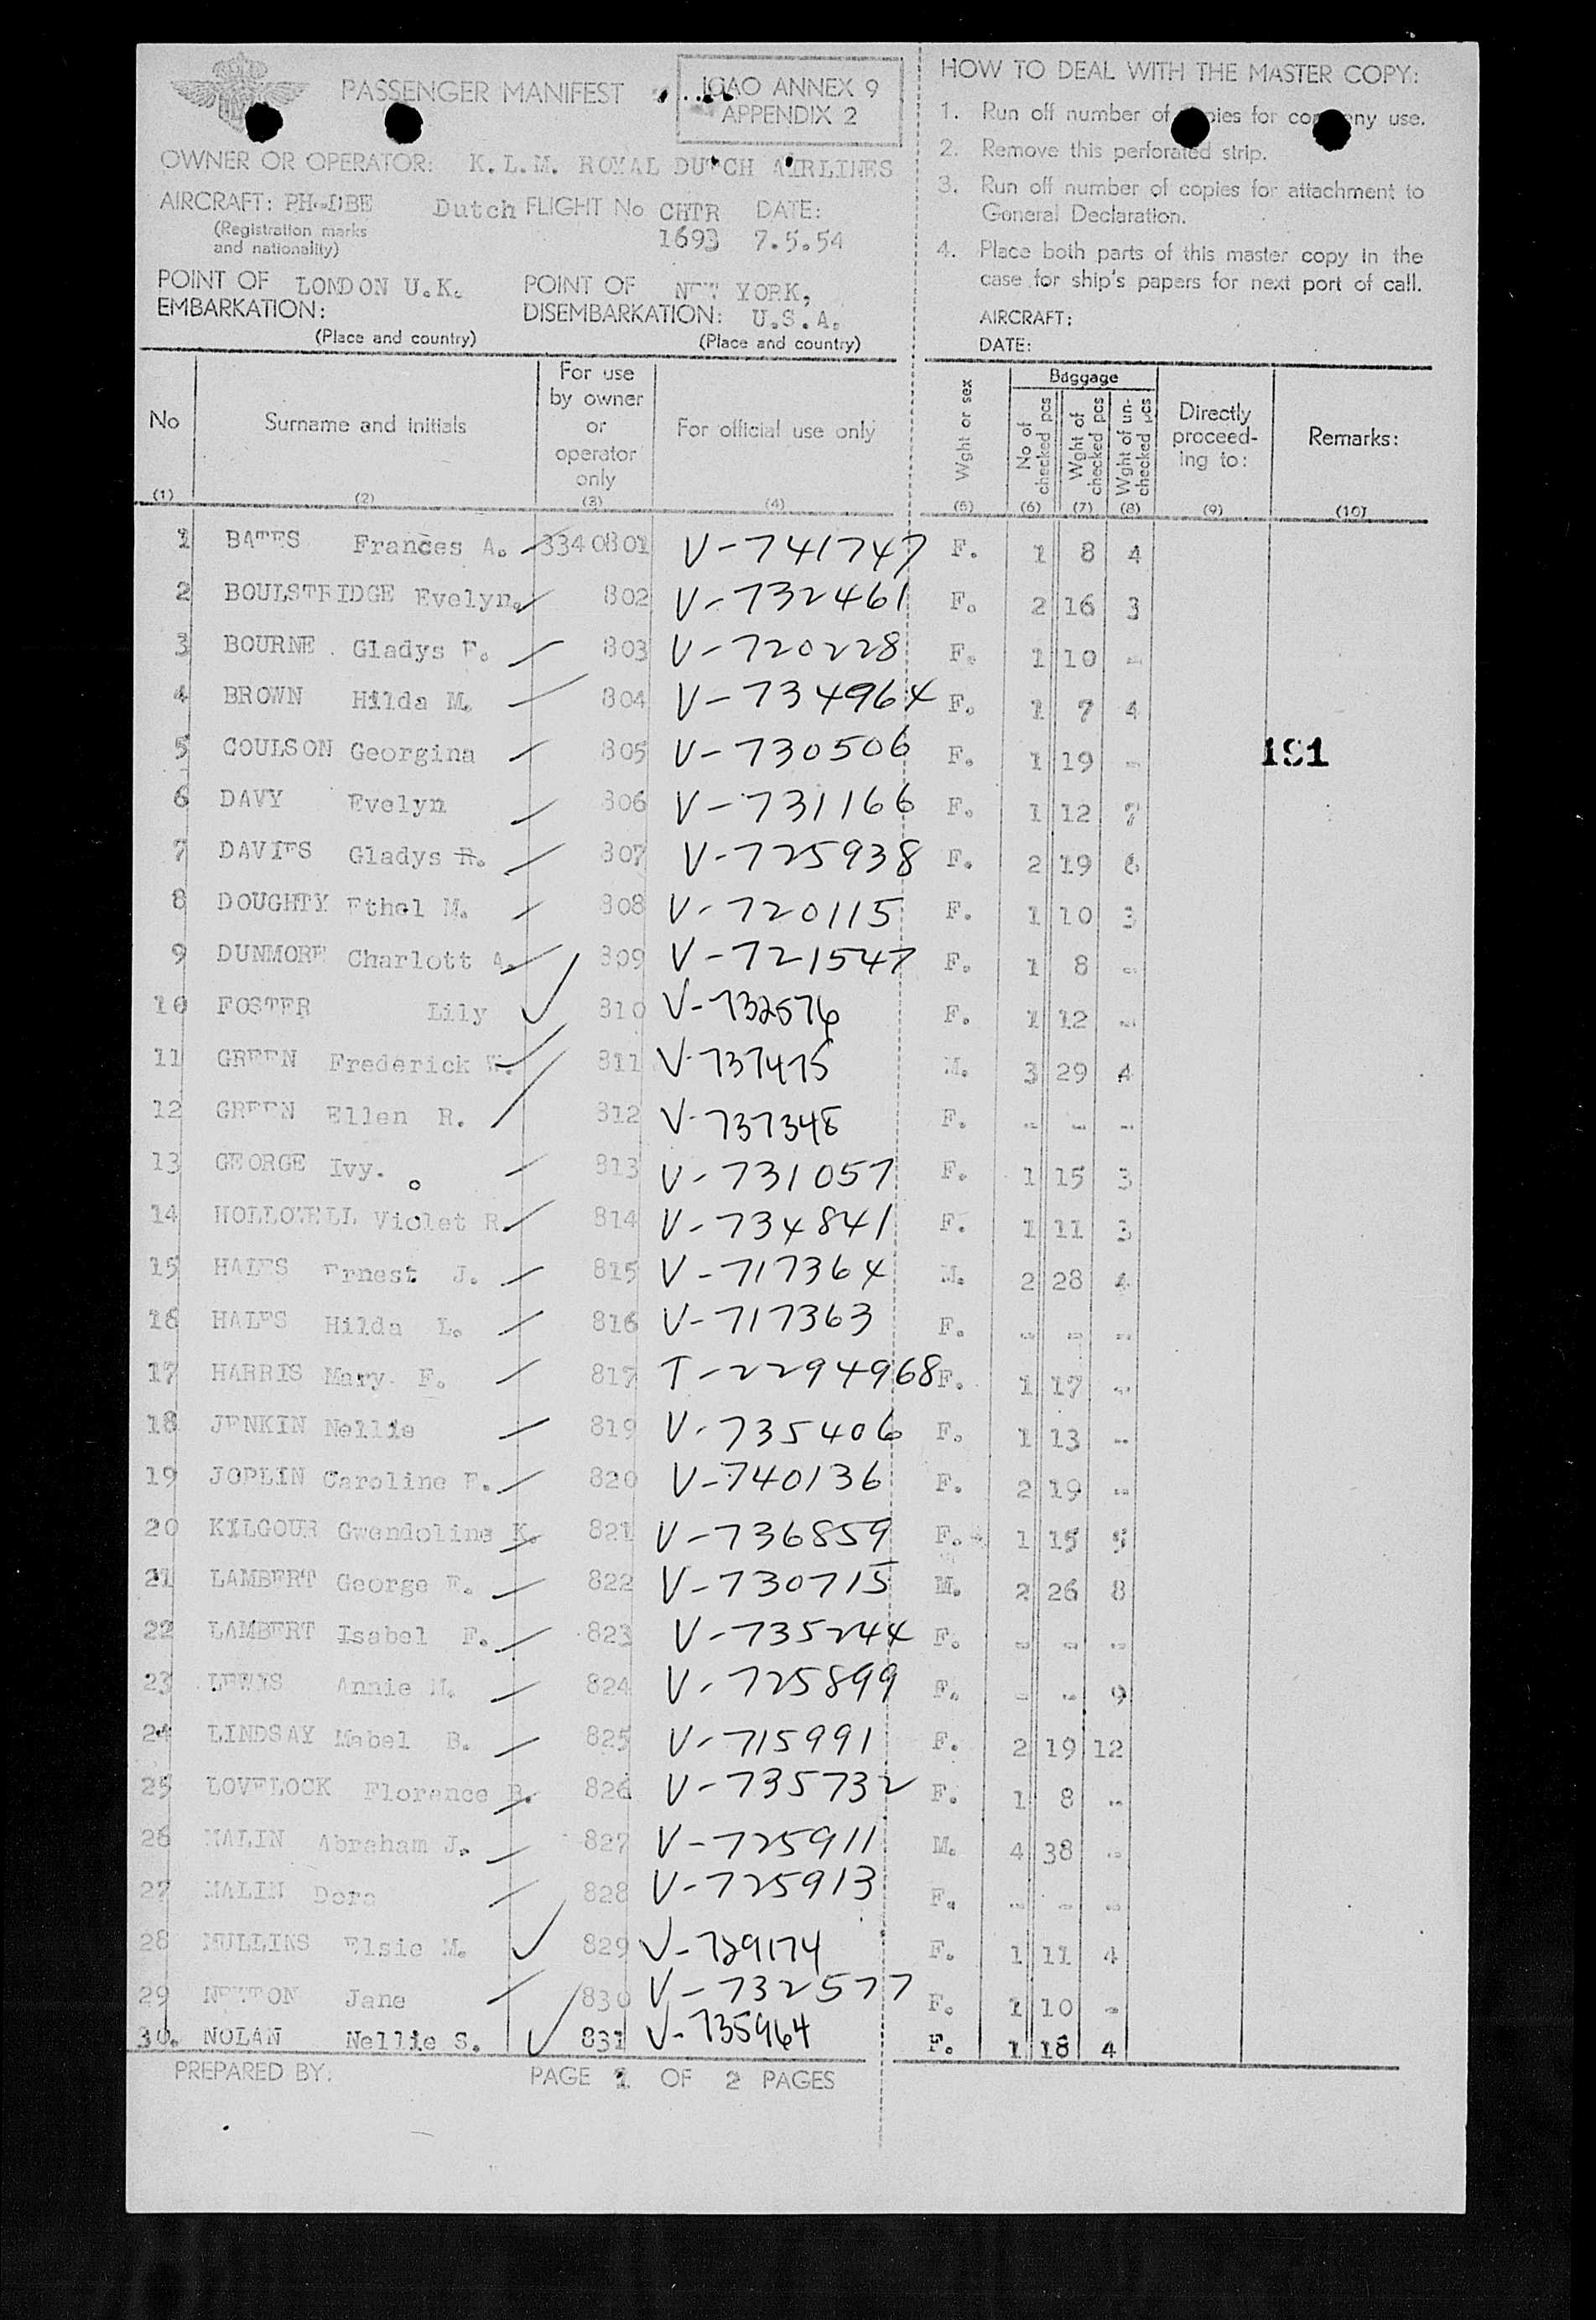 PASSENGER MANIFEST
ICAO ANNEX 9
APPENDIX 2
OWNER OR OPERATOR: K.L.M. ROYAL DUTCH AIRLINES
AIRCRAFT: PH-DBE Dutch FLIGHT No CHTR DATE:
(Registration marks
and nationality) 1693 7.5.54
POINT OF LONDON U.K. POINT OF NEW YORK,
EMBARKATION: DISEMBARKATION: U.S.A.
(Place and country) (Place and country)
HOW TO DEAL WITH THE MASTER COPY:
1. Run off number of copies for company use.
2. Remove this perforated strip.
3. Run off number of copies for attachment to
General Declaration.
4. Place both parts of this master copy in the
case for ship's papers for next port of call.
AIRCRAFT:
DATE:
No Surname and initials For use by owner or operator only For official use only Wght or sex Baggage No of checked pcs Wght of checked pcs Wght of un-checked pcs Directly proceed-ing to: Remarks:
(1) (2) (3) (4) (5) (6) (7) (8) (9) (10)
1 BATES Frances A. 3340801 V-741747 F. 1 8 4
2 BOULSTRIDGE Evelyn. 802 V-732461 F. 2 16 3
3 BOURNE Gladys F. 803 V-720228 F. 1 10 -
4 BROWN Hilda M. 804 V-734964 F. 1 7 4
5 COULSON Georgina 805 V-730506 F. 1 19 -
191
6 DAVY Evelyn 806 V-731166 F. 1 12 7
7 DAVIES Gladys R. 807 V-725938 F. 2 19 6
8 DOUGHTY Ethel M. 808 V-720115 F. 1 10 3
9 DUNMORE Charlott A. 809 V-721547 F. 1 8 -
10 FOSTER Lily 810 V-732576 F. 1 12 -
11 GREEN Frederick W. 811 V-737475 M. 3 29 4
12 GREEN Ellen R. 812 V-737348 F. - - -
13 GEORGE Ivy. 813 V-731057 F. 1 15 3
14 HOLLOWELL Violet R. 814 V-734841 F. 1 11 3
15 HALES Ernest J. 815 V-717364 M. 2 28 4
16 HALES Hilda L. 816 V-717363 F. - - -
17 HARRIS Mary. F. 817 T-2294968 F. 1 17 -
18 JENKIN Nellie 819 V-735406 F. 1 13 -
19 JOPLIN Caroline F. 820 V-740136 F. 2 19 -
20 KILGOUR Gwendoline K. 821 V-736859 F. 1 15 5
21 LAMBERT George E. 822 V-730715 M. 2 26 8
22 LAMBERT Isabel F. 823 V-735244 F. - - -
23 LEWIS Annie M. 824 V-725899 F. - - 9
24 LINDSAY Mabel B. 825 V-715991 F. 2 19 12
25 LOVELOCK Florence B. 826 V-735732 F. 1 8 -
26 MALIN Abraham J. 827 V-725911 M. 4 38 -
27 MALIN Dora 828 V-725913 F. - - -
28 MULLINS Elsie M. 829 V-729174 F. 1 11 4
29 NEWTON Jane 830 V-732577 F. 1 10 -
30. NOLAN Nellie S. 831 V-735964 F. 1 18 4
PREPARED BY: PAGE 1 OF 2 PAGES